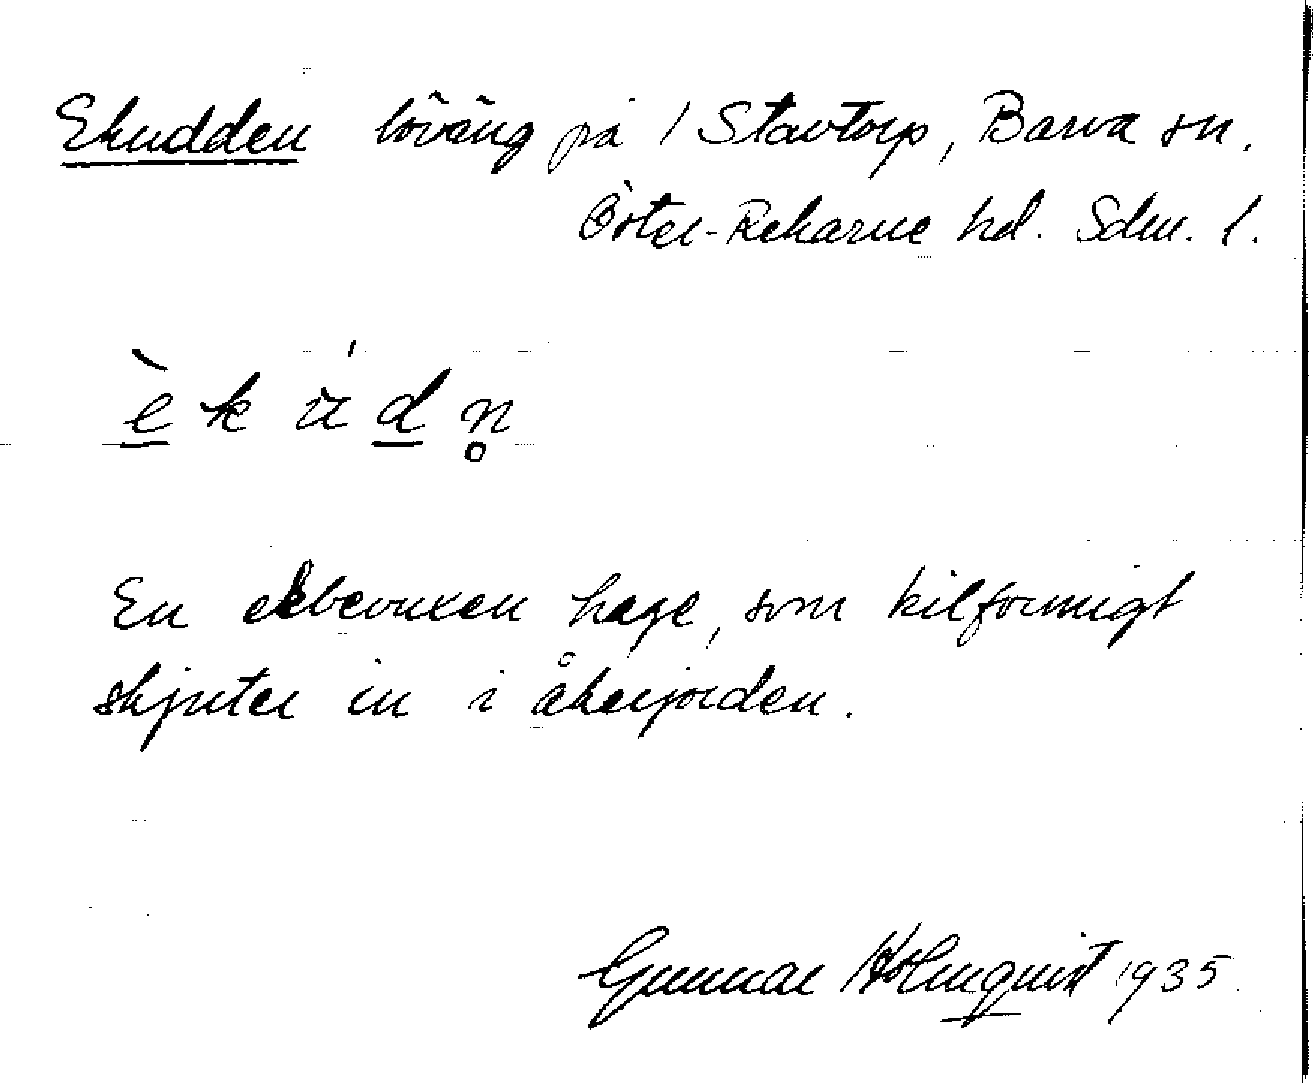 Ekudden löväng på 1 Stavtorp, Barva sn.
Öster-Rekarne hd. Sdm. l.
è k ù́ d n̥
En ekbevuxen hage, som kilformigt
skjuter in i åkerjorden.
Gunnar Holmquist 1935.